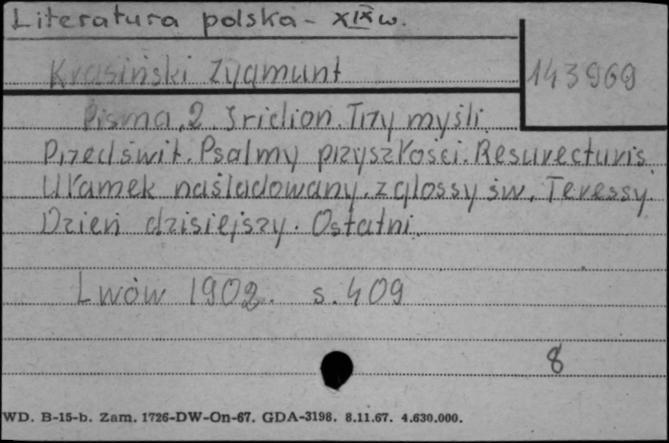 Literatura polska - XIX w.
Krasiński Zygmunt
143969
Pisma. 2. Iridion. Trzy myśli.
Przedświt. Psalmy przyszłości. Resurecturis.
Ułamek naśladowany. z glossy św. Teressy.
Dzień dzisiejszy. Ostatni.
Lwów 1902. s. 409
8
WD. B-15-b. Zam. 1726-DW-On-67. GDA-3198. 8.11.67. 4.630.000.